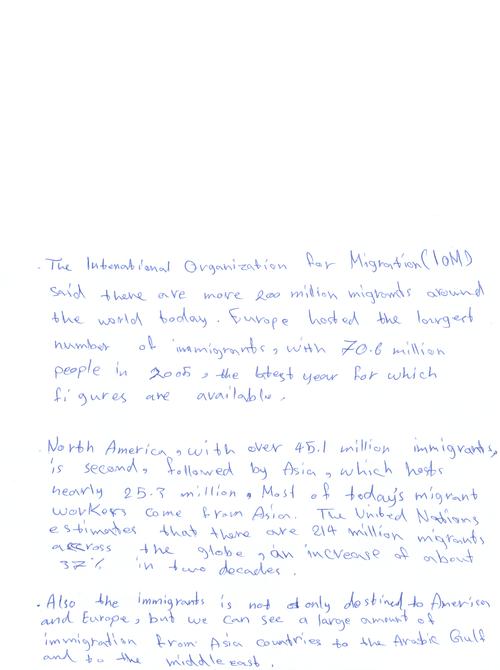 . The International Organization for Migration (IOM)
said there are more 200 million migrants around
the world today. Europe hosted the largest
number of immigrants, with 70.6 million
people in 2005, the latest year for which
figures are available.
. North America, with over 45.1 million immigrants,
is second, followed by Asia, which hosts
nearly 25.3 million, Most of today's migrant
workers come from Asia. The United Nations
estimates that there are 214 million migrants
across the globe, an increase of about
37% in two decades.
. Also the immigrants is not only destined to American
and Europe, but we can see a large amount of
immigration from Asia countries to the Arabic Gulf
and to the middle east.